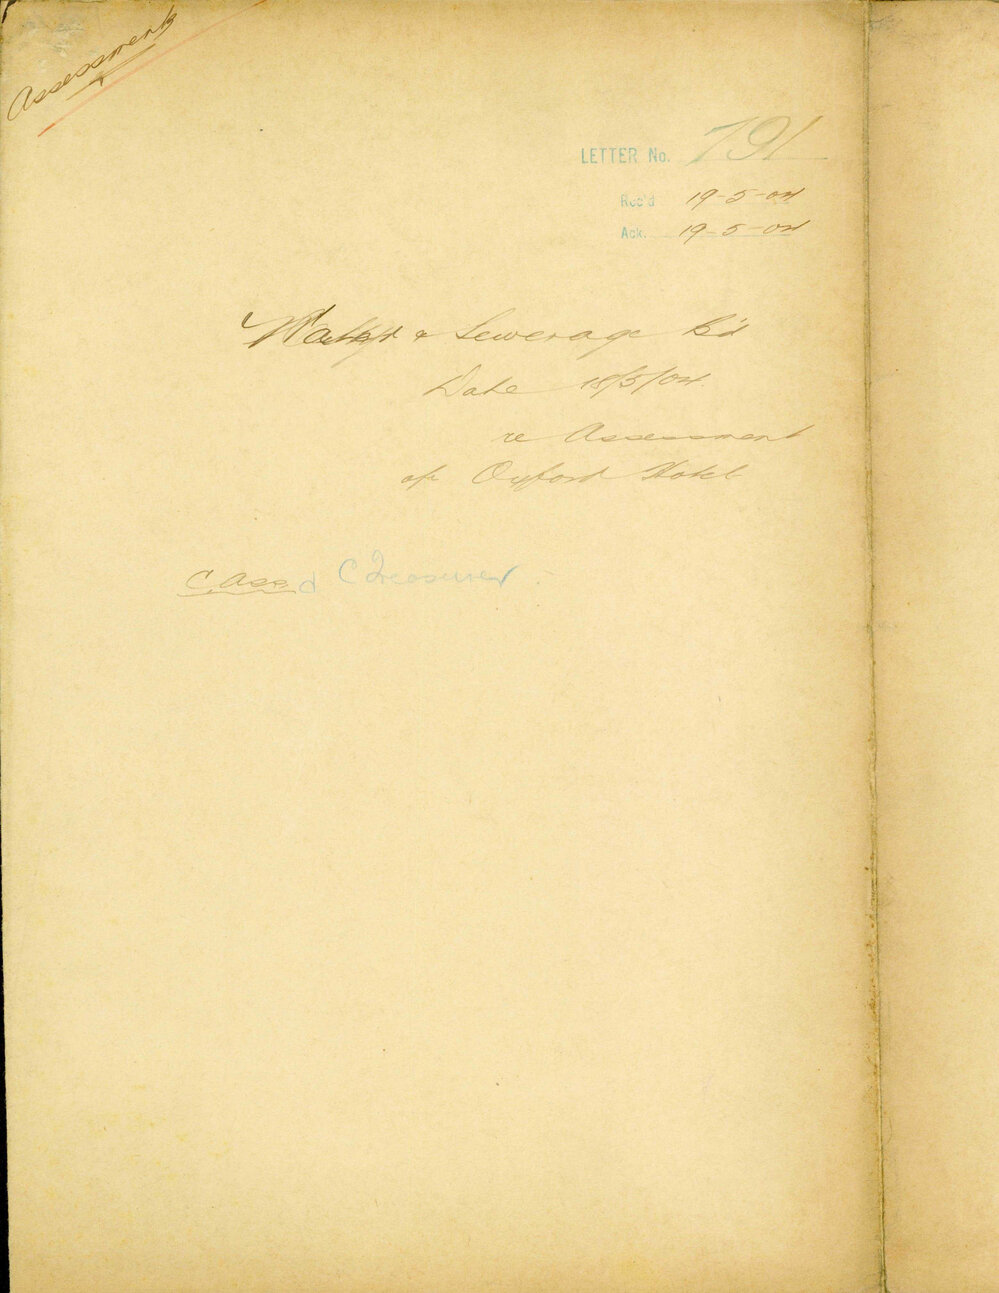 Assessment
LETTER No. 791
Rec'd 19-5-04
Ack. 19-5-04
Water & Sewerage B'd
Date 18/5/04.
re Assessment
of Oxford Hotel
C. Ass. & C Treasurer